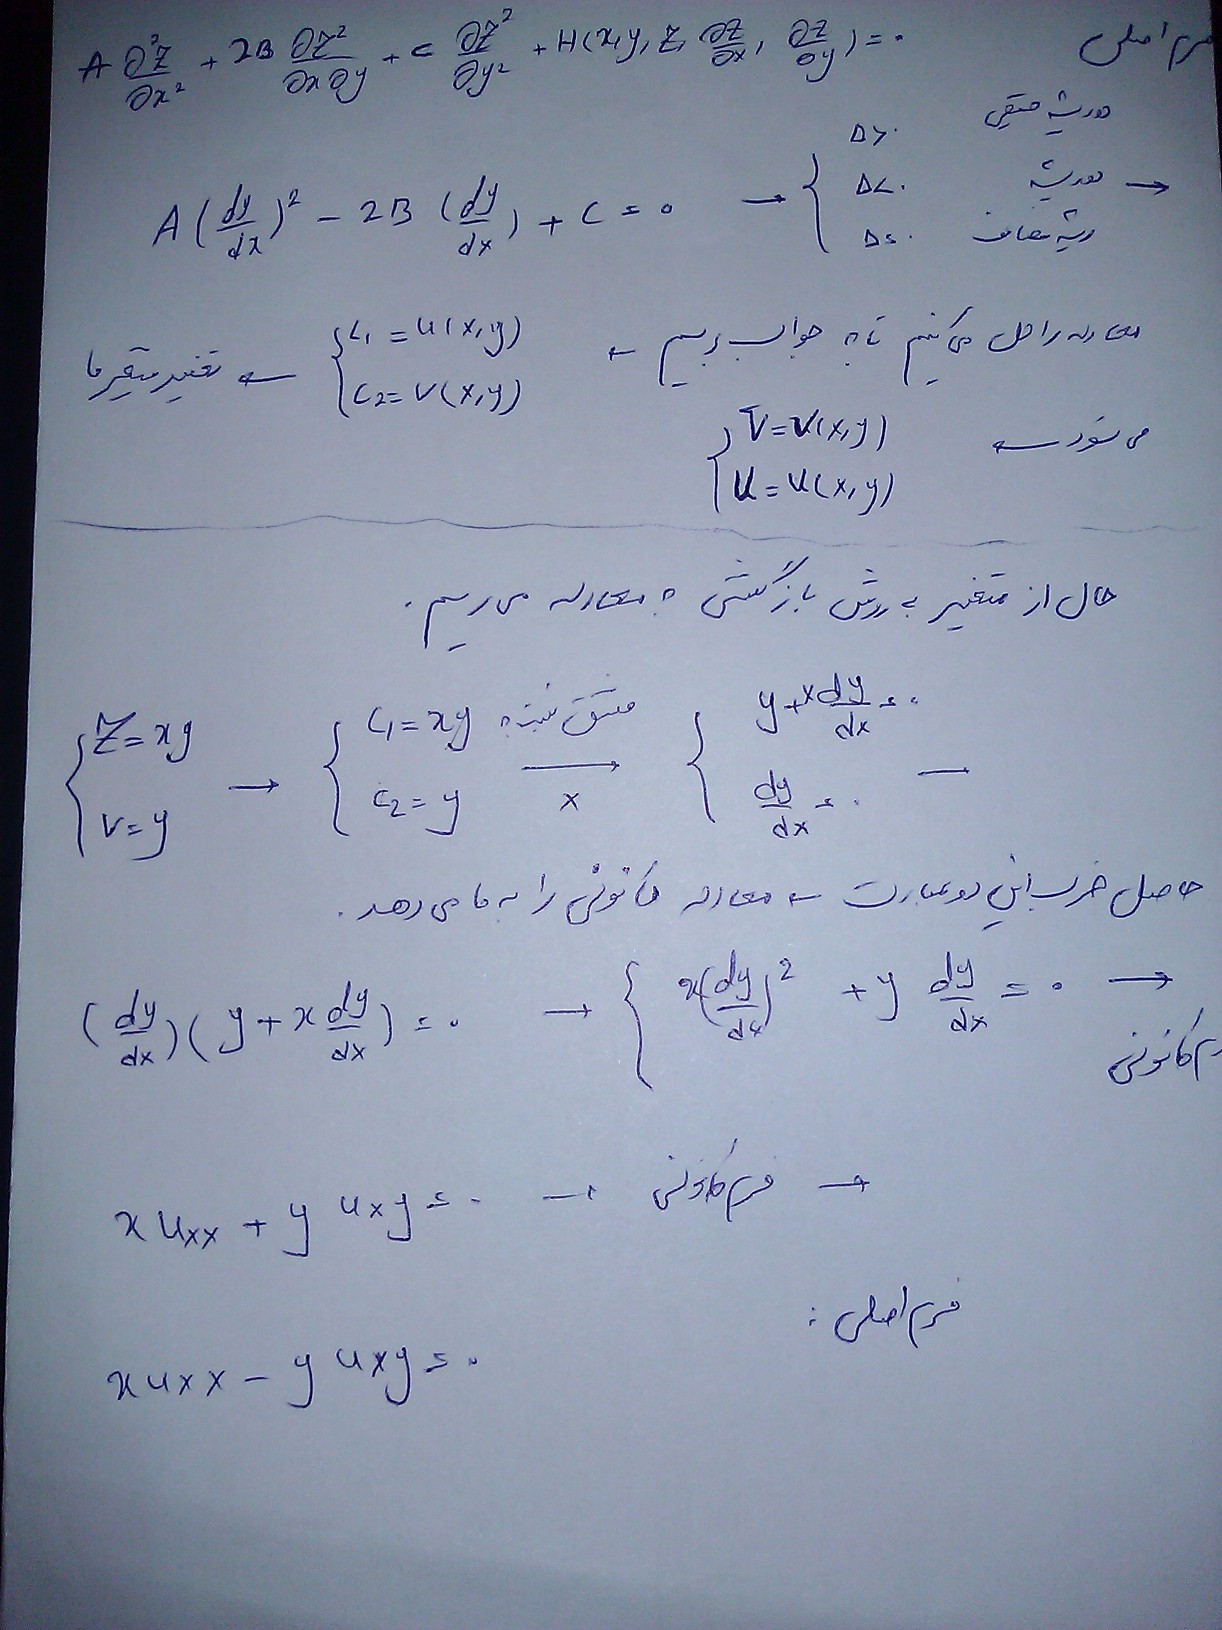 فرم اصلی A ∂²Z/∂x² + 2B ∂Z²/∂x∂y + C ∂Z²/∂y² + H(x,y,Z,∂Z/∂x,∂Z/∂y) = ۰
A(dy/dx)² - 2B(dy/dx) + C = ۰ → { Δ>۰ دو ریشه حقیقی
Δ<۰ دو ریشه →
Δ=۰ ریشه مضاعف
معادله را حل می کنیم تا به جواب برسیم ← { C₁ = u(x,y) ← تغییر متغیر ما
C₂ = V(x,y)
می شود ← { V = V(x,y)
U = U(x,y)
حال از متغیر به روش بازگشتی به معادله می رسیم.
{ Z = xy → { C₁ = xy مشتق نسبت به x → { y + x dy/dx = ۰
V = y C₂ = y dy/dx = ۰ →
حاصل ضرب این دو عبارت ← معادله کانونی را به ما می دهد.
(dy/dx)(y + x dy/dx) = ۰ → { x(dy/dx)² + y dy/dx = ۰ →
فرم کانونی
x uxx + y uxy = ۰ → فرم کانونی →
فرم اصلی :
x uxx - y uxy = ۰